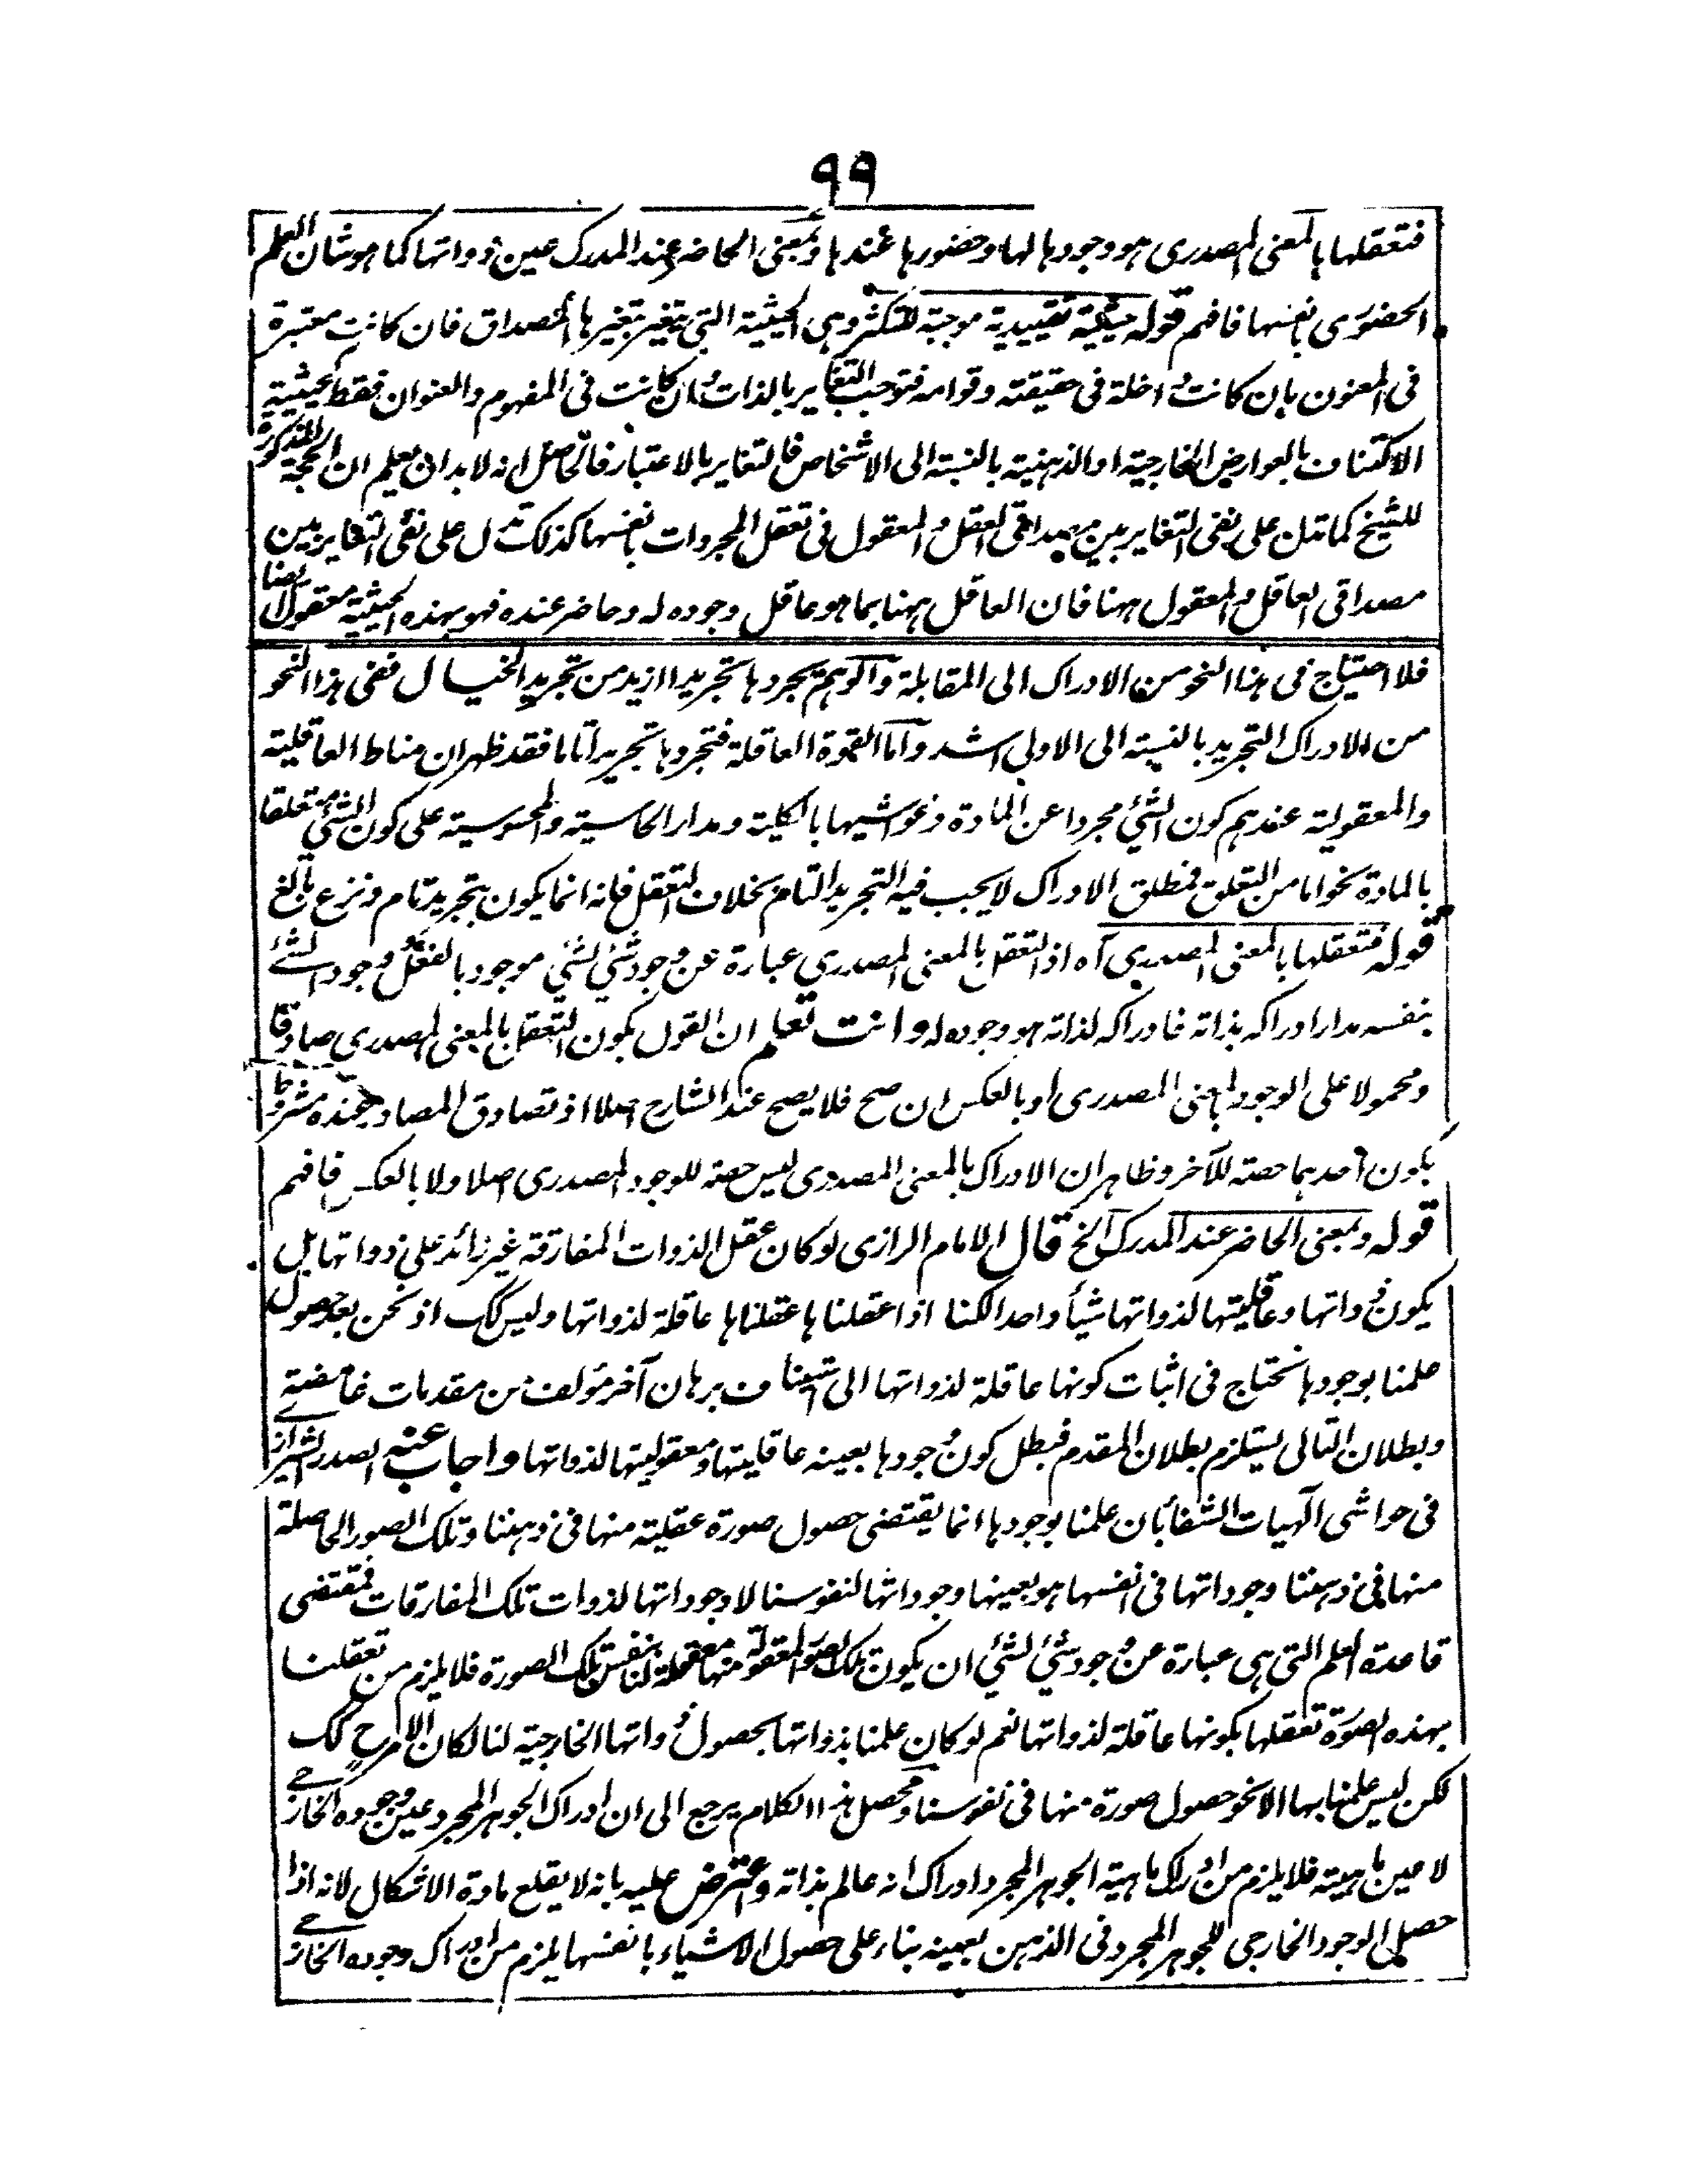 ٩٩
فتعقلها بالمعنى المصدرى هو وجودها لها وحضورها عندها وبمعنى الحاضر عند المدرك عين ذواتها كما هو شان العلم
الحضورى بانفسها فافهم قوله حيثية تقييدية موجبة للتكثر وهى الحيثية التى يتغير بتغيرها المصداق فان كانت معتبرة
فى المعنون بان كانت داخلة فى حقيقته وقوامه فتوجب التغاير بالذات وان كانت فى المفهوم والعنوان فقط كحيثية
الاكتناف بالعوارض الخارجية او الذهنية بالنسبة الى الاشخاص فالتغاير بالاعتبار فالحاصل انه لا بد ان يعلم ان الحجة المذكورة
للشيخ كما تدل على نفى التغاير بين مصداقى العقل والمعقول فى تعقل المجردات بانفسها كذلك تدل على نفى التغاير بين
مصداقى العاقل والمعقول ههنا فان العاقل ههنا بما هو عاقل وجوده له وحاضر عنده فهو بهذه الحيثية معقول ايضا
فلا احتياج فى هذا النحو من الادراك الى المقابلة والوهم يجردها تجريدا ازيد من تجريد الخيال ففى هذا النحو
من الادراك التجريد بالنسبة الى الاولى اشد واما القوة العاقلة فتجردها تجريدا تاما فقد ظهر ان مناط العاقلية
والمعقولية عندهم كون الشئ مجردا عن المادة وغواشيها بالكلية ومدار الحاسية والمحسوسية على كون الشئ متعلقا
بالمادة نحوا ما من التعلق فمطلق الادراك لا يجب فيه التجريد التام بخلاف التعقل فانه انما يكون بتجريد تام ونزع بالغ
قوله فتعقلها بالمعنى المصدرى آه اذ التعقل بالمعنى المصدرى عبارة عن وجود شئ لشئ موجود بالفعل ووجود الشئ
بنفسه مدار ادراكه بذاته فادراكه لذاته هو وجوده له وانت تعلم ان القول بكون التعقل بالمعنى المصدرى صادقا
ومحمولا على الوجود بالمعنى المصدرى او بالعكس ان صح فلا يصح عند الشارح اصلا اذ تصادق المصادر عنده مشروط
بكون احدهما حصة للآخر وظاهر ان الادراك بالمعنى المصدرى ليس حصة للوجود المصدرى اصلا ولا بالعكس فافهم
قوله وبمعنى الحاضر عند المدرك الخ قال الامام الرازى لو كان عقل الذوات المفارقة غير زائد على ذواتها بل
يكون ذواتها وعاقليتها لذواتها شيأ واحدا لكنا اذا عقلناها عقلناها عاقلة لذواتها وليس كك اذ نحن بعد حصول
علمنا بوجودها نحتاج فى اثبات كونها عاقلة لذواتها الى استيناف برهان آخر مؤلف من مقدمات غامضة
وبطلان التالى يستلزم بطلان المقدم فبطل كون وجودها بعينه عاقليتها ومعقوليتها لذواتها واجاب عنه الصدر الشيرازى
فى حواشى الهيات الشفا بان علمنا بوجودها انما يقتضى حصول صورة عقلية منها فى ذهننا وتلك الصور الحاصلة
منها فى ذهننا وجوداتها فى انفسها هو بعينها وجوداتها لنفوسنا لا وجوداتها لذوات تلك المفارقات فمقتضى
قاعدة العلم التى هى عبارة عن وجود شئ لشئ ان يكون تلك الصور المعقولة منها معقولة لنا بنفس تلك الصورة فلا يلزم من تعقلنا
بهذه الصورة تعقلها بكونها عاقلة لذواتها نعم لو كان علمنا بذواتها بحصول ذواتها الخارجية لنا لكان الامر ح كك
لكن ليس علمنا بها الا نحو حصول صورة منها فى نفوسنا ومحصل هذا الكلام يرجع الى ان ادراك الجوهر المجرد عين وجوده الخارجى
لا عين ماهيته فلا يلزم من ادراك ماهية الجوهر المجرد ادراك انه عالم بذاته واعترض عليه بانه لا يقلع مادة الاشكال لانه اذا
حصل الوجود الخارجى للجوهر المجرد فى الذهن بعينه بناء على حصول الاشياء بانفسها يلزم من ادراك وجوده الخارجى